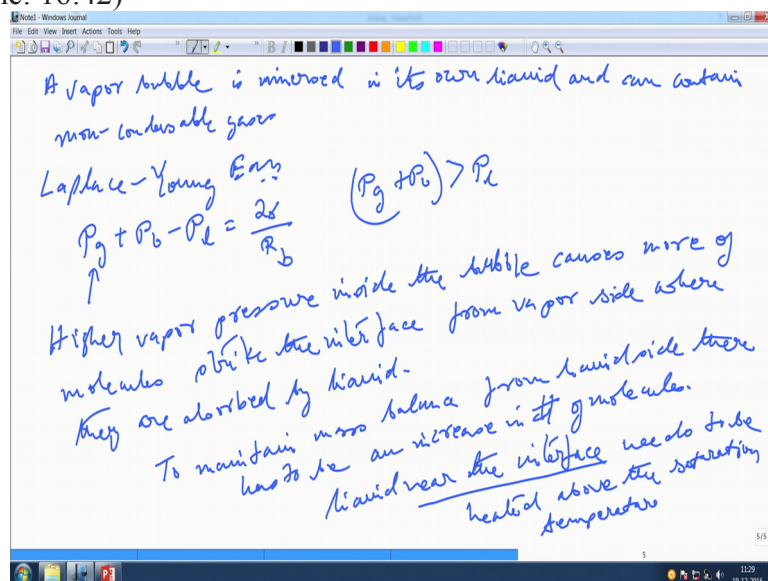 Note1 - Windows Journal
File Edit View Insert Actions Tools Help
A vapor bubble is immersed in its own liquid and can contain
non-condensable gases
Laplace-Young Eqn
Pg + Pb - Pl = 2γ / Rb
(Pg + Pb) > Pl
Higher vapor pressure inside the bubble causes more of
molecules strike the interface from vapor side where
they are absorbed by liquid.
To maintain mass balance from liquid side there
has to be an increase in # of molecules.
liquid near the interface needs to be
heated above the saturation
temperature
5/5
5
11:29
19-12-2016